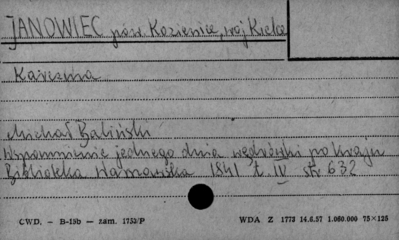 JANOWIEC pow. Kozienice, woj Kielce
Karczma
Michał Baliński
Wspomnienie jednego dnia wędrówki po kraju
Biblioteka Warszawska 1841 t. IV str. 632
CWD. — B-15b — zam. 1733/P WDA Z 1773 14.6.57 1.000.000 75×125